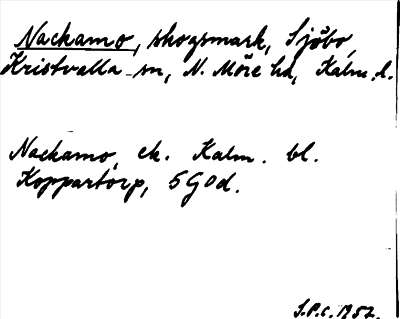 Nackamo, skogsmark, Sjöbo,
Kristvalla sn, N. Möre hd, Kalm. l.
Nackamo, ek. Kalm. bl.
Koppartorp, 5 G0d.
S.P.C. 1957.